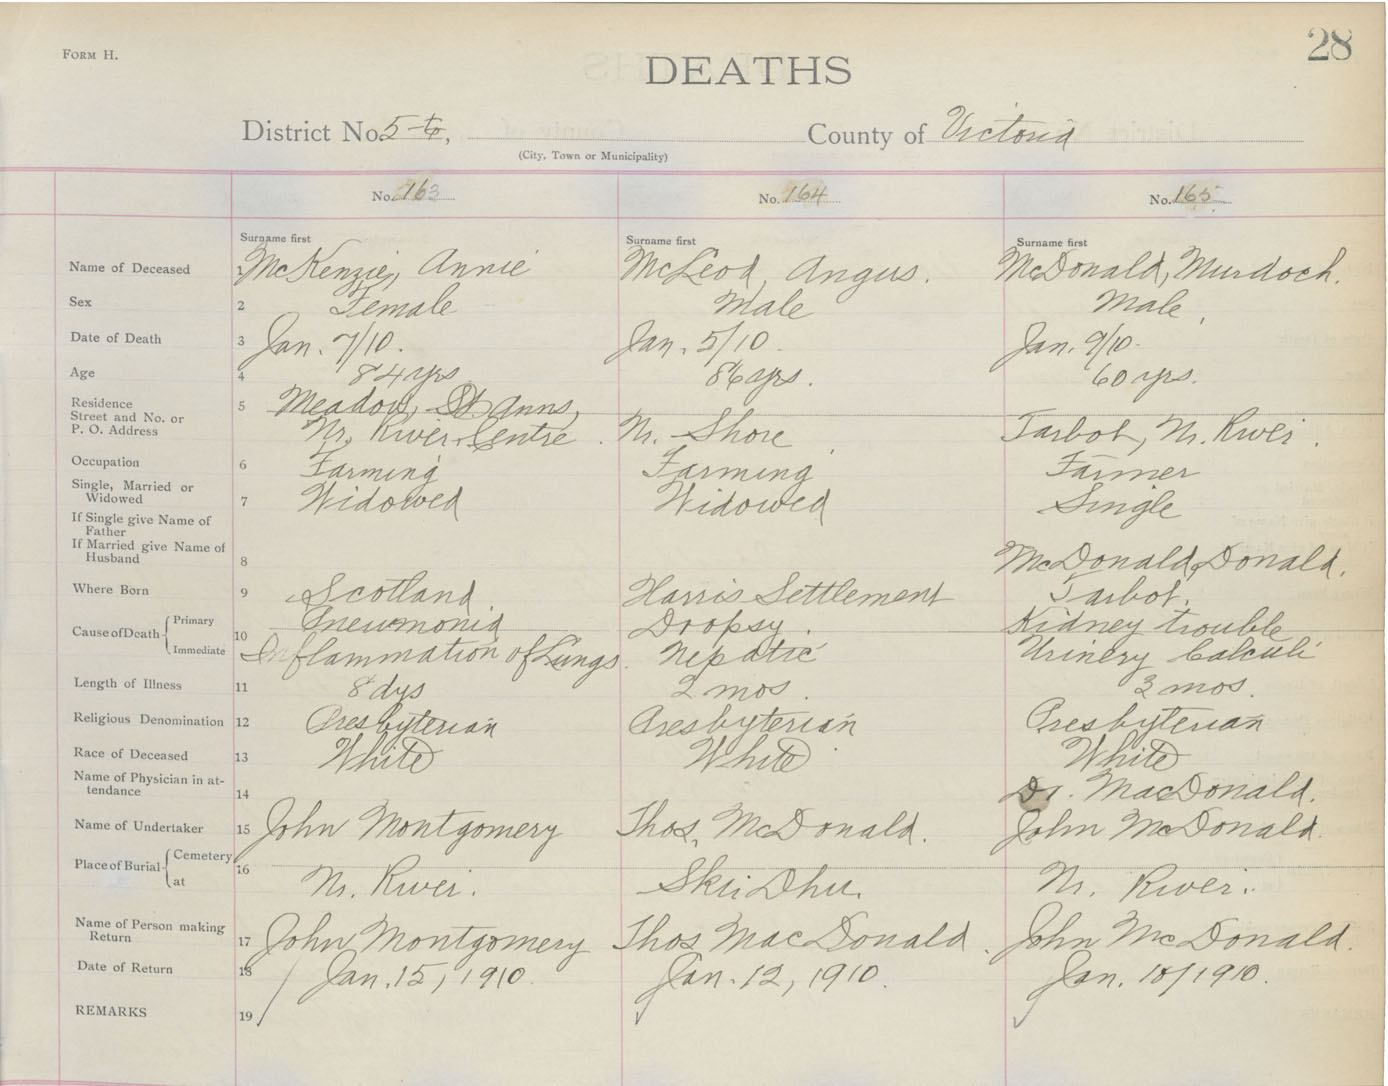 28
FORM H.
DEATHS
District No. 5 County of Victoria
(City, Town or Municipality)
No. 163 No. 164 No. 165
Surname first Surname first Surname first
Name of Deceased 1 McKenzie, Annie McLeod, Angus. McDonald, Murdoch.
Sex 2 Female Male Male
Date of Death 3 Jan. 7/10. Jan. 5/10 Jan. 9/10.
Age 4 84 yrs 86 yrs. 60 yrs.
Residence
Street and No. or
P. O. Address 5 Meadow, St Anns,
Nr. River Centre. Nr. Shore Tarbot, Nr. River.
Occupation 6 Farming Farming Farmer
Single, Married or
Widowed 7 Widowed Widowed Single
If Single give Name of
Father
If Married give Name of
Husband 8 McDonald, Donald.
Where Born 9 Scotland Harris Settlement Tarbot.
Cause of Death Primary Pneumonia Dropsy. Kidney trouble
10 Immediate Inflammation of Lungs. Hepatic Urinery Calculi
Length of Illness 11 8 dys 2 mos. 3 mos.
Religious Denomination 12 Presbyterian Presbyterian Presbyterian
Race of Deceased 13 White White White
Name of Physician in at-
tendance 14 Dr. MacDonald.
Name of Undertaker 15 John Montgomery Thos. McDonald. John McDonald.
Place of Burial Cemetery
at 16 Nr. River. Skir Dhu. Nr. River.
Name of Person making
Return 17 John Montgomery Thos MacDonald. John McDonald.
Date of Return 18 Jan. 15, 1910. Jan. 12, 1910. Jan. 10/1910.
REMARKS 19